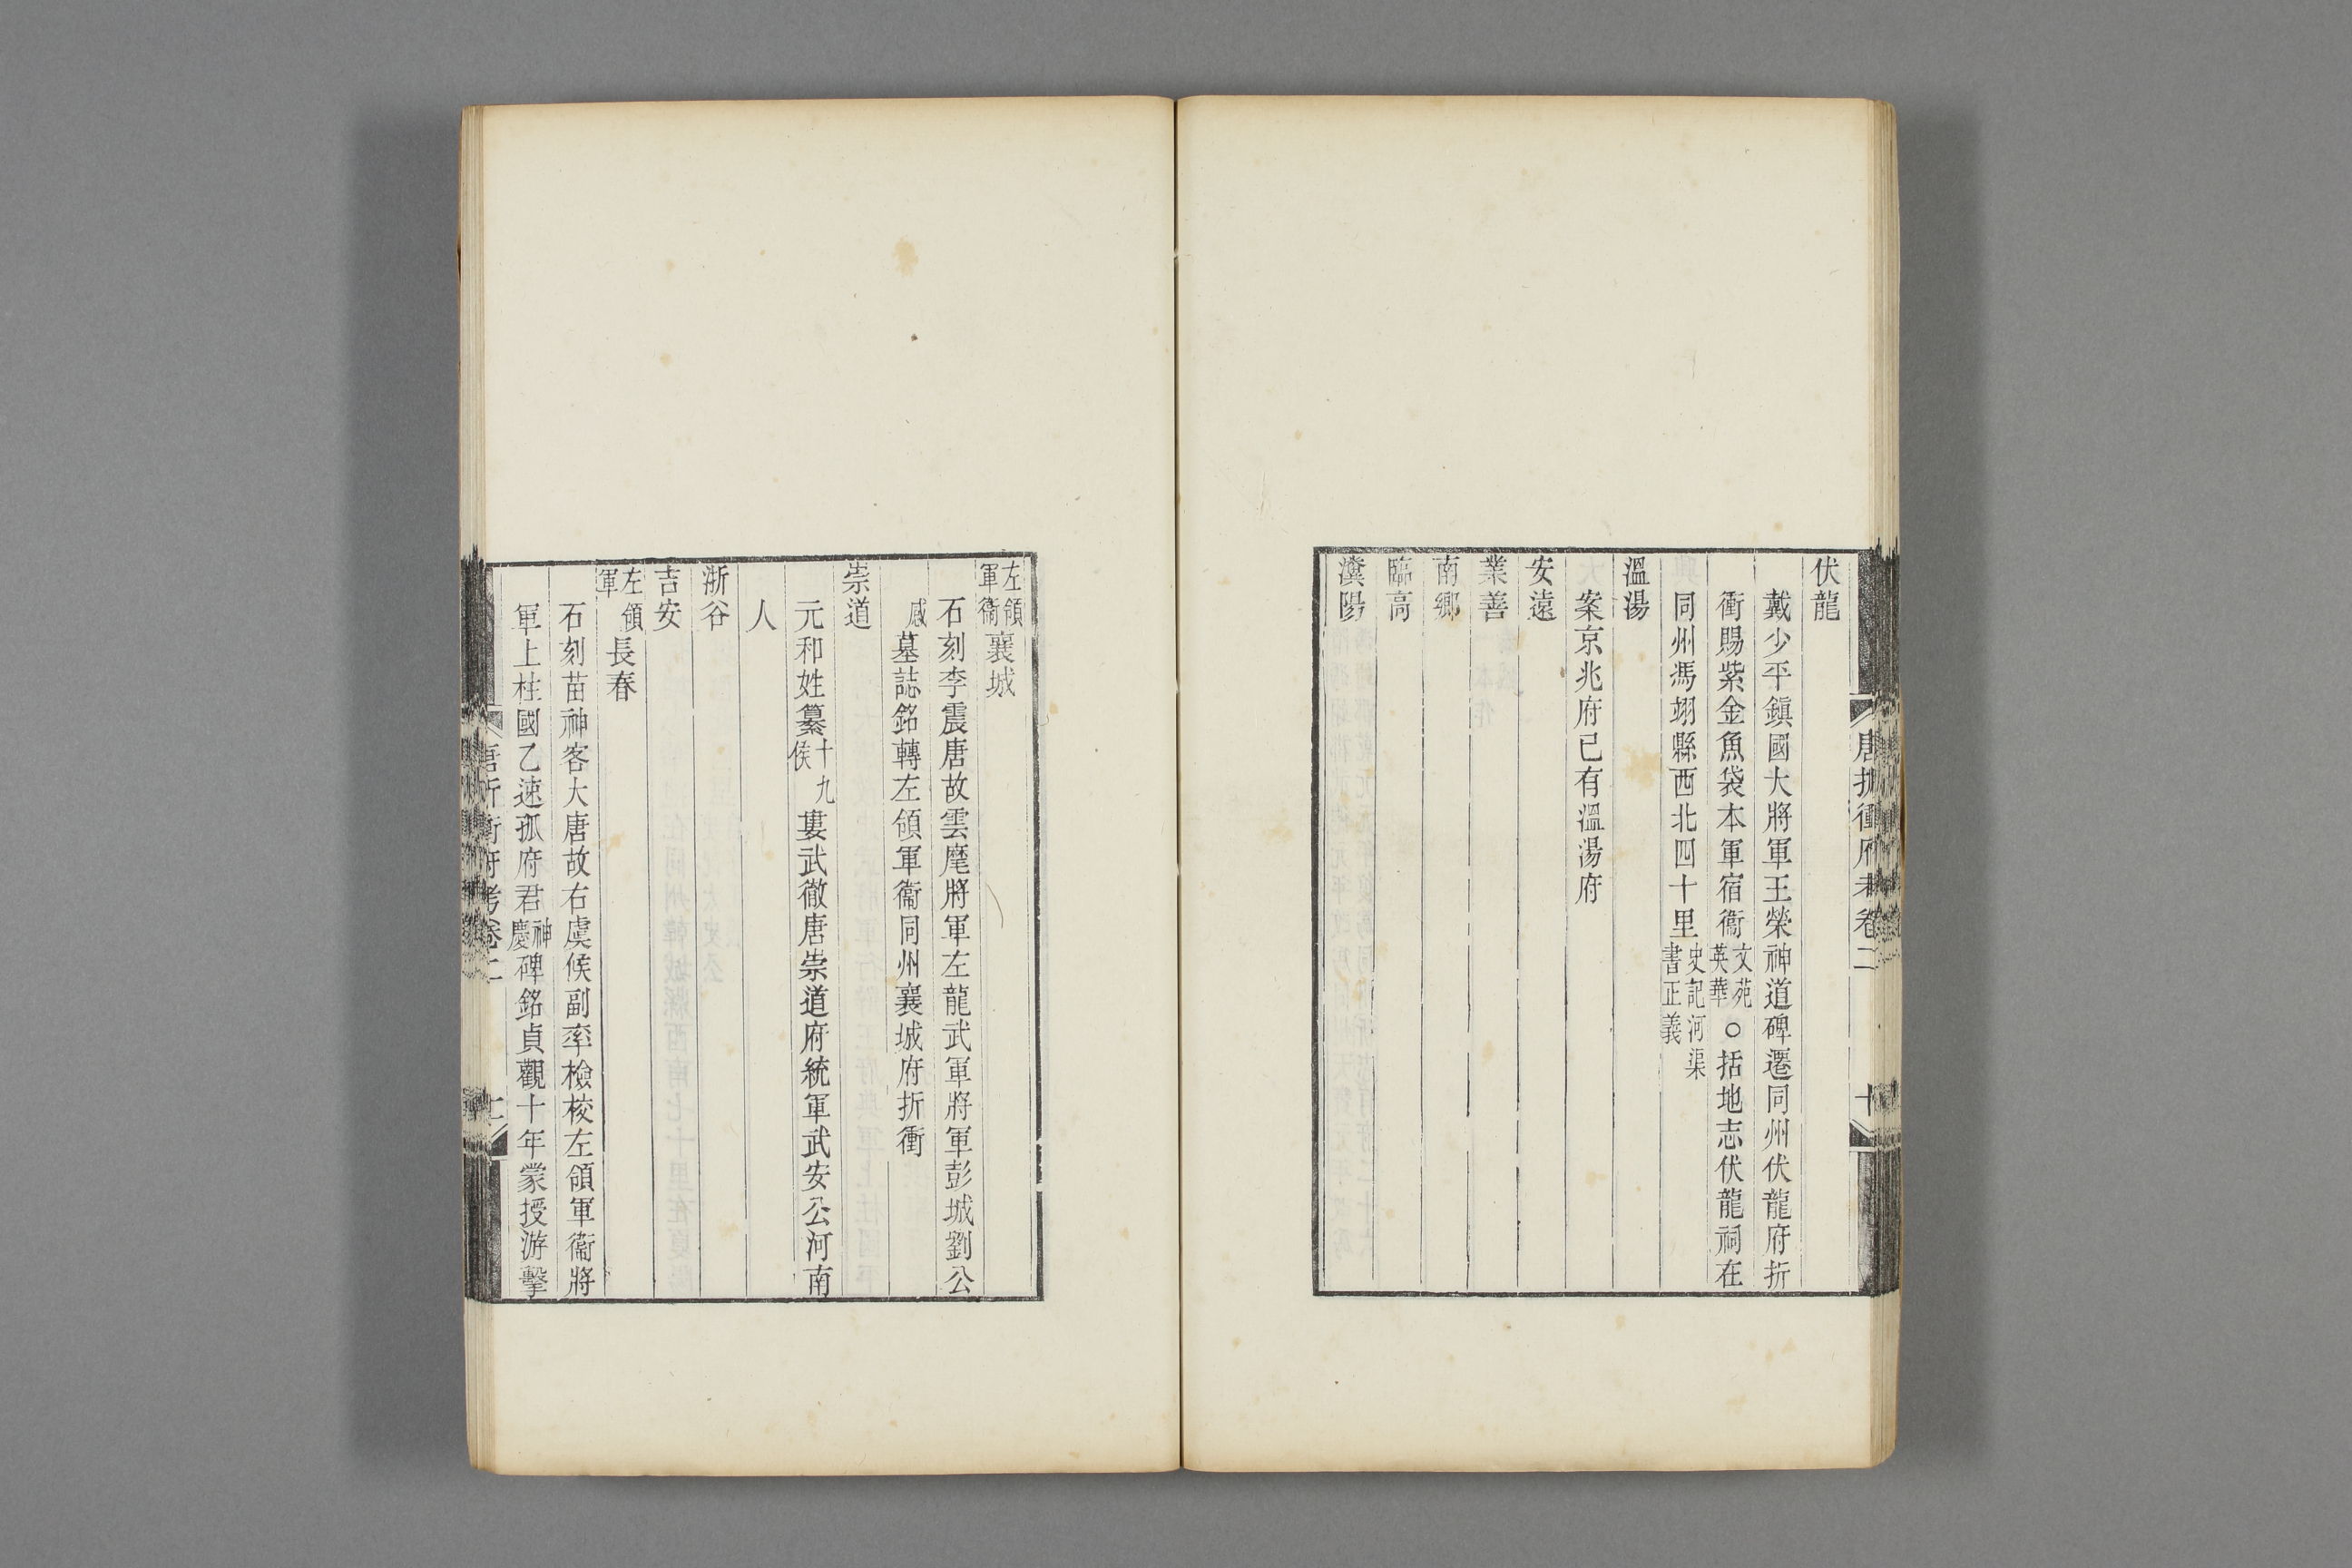 伏龍
戴少平鎮國大將軍王榮神道碑遷同州伏龍府折
衝賜紫金魚袋本軍宿衞文苑英華○括地志伏龍祠在
同州馮翊縣西北四十里史記河渠書正義
溫湯
案京兆府已有溫湯府
安遠
業善
南鄉
臨高
瀵陽
左領軍衞襄城
石刻李震唐故雲麾將軍左龍武軍將軍彭城劉公
感墓誌銘轉左領軍衞同州襄城府折衝
崇道
元和姓纂十九侯婁武徹唐崇道府統軍武安公河南
人
浙谷
吉安
左領軍長春
石刻苗神客大唐故右虞候副率檢校左領軍衞將
軍上柱國乙速孤府君神慶碑銘貞觀十年蒙授游擊
唐折衝府考卷二